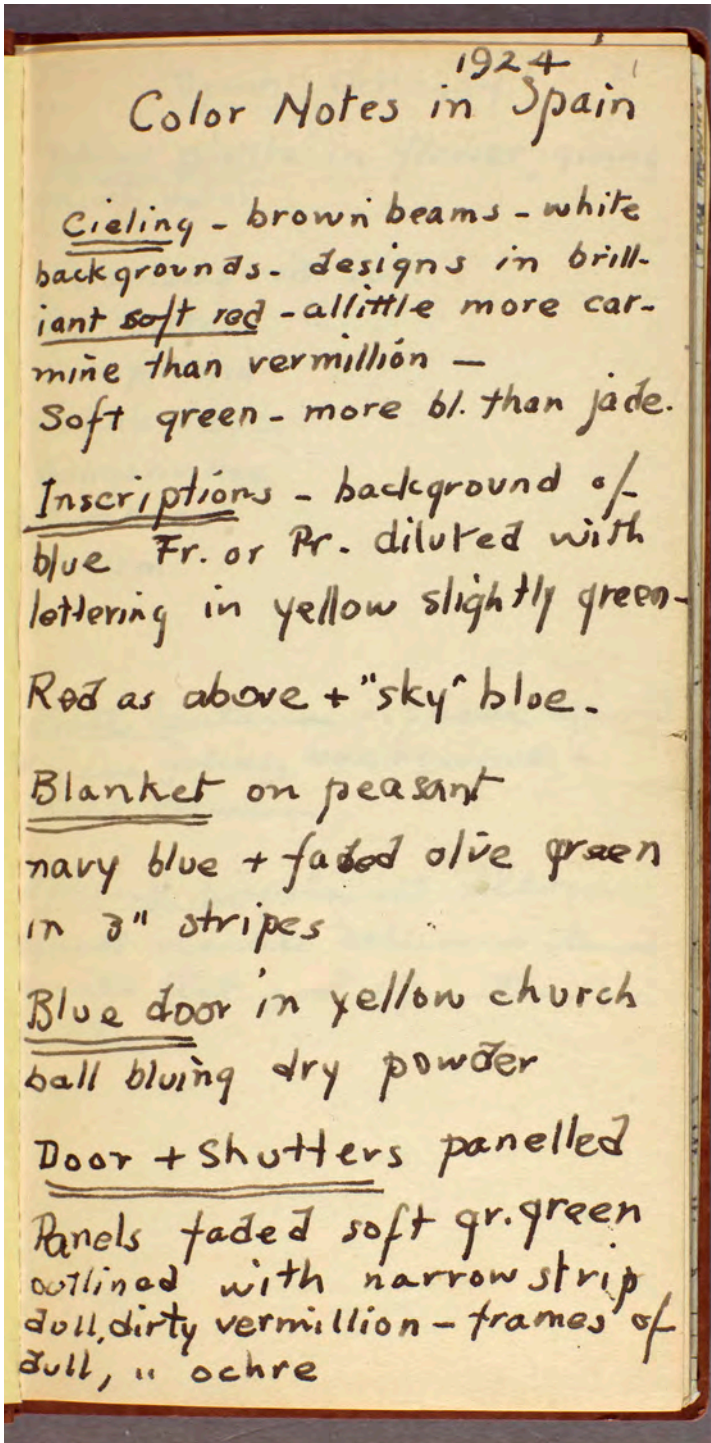 1924
Color Notes in Spain
Cieling - brown beams - white
backgrounds - designs in brill-
iant soft red - allittle more car-
mine than vermillion -
Soft green - more bl. than jade.
Inscriptions - background of
blue Fr. or Pr. diluted with
lettering in yellow slightly green -
Red as above + "sky" blue -
Blanket on peasant
navy blue + faded olive green
in 3" stripes
Blue door in yellow church
ball bluing dry powder
Door + Shutters panelled
Panels faded soft gr. green
outlined with narrow strip
dull, dirty vermillion - frames of
dull, " ochre